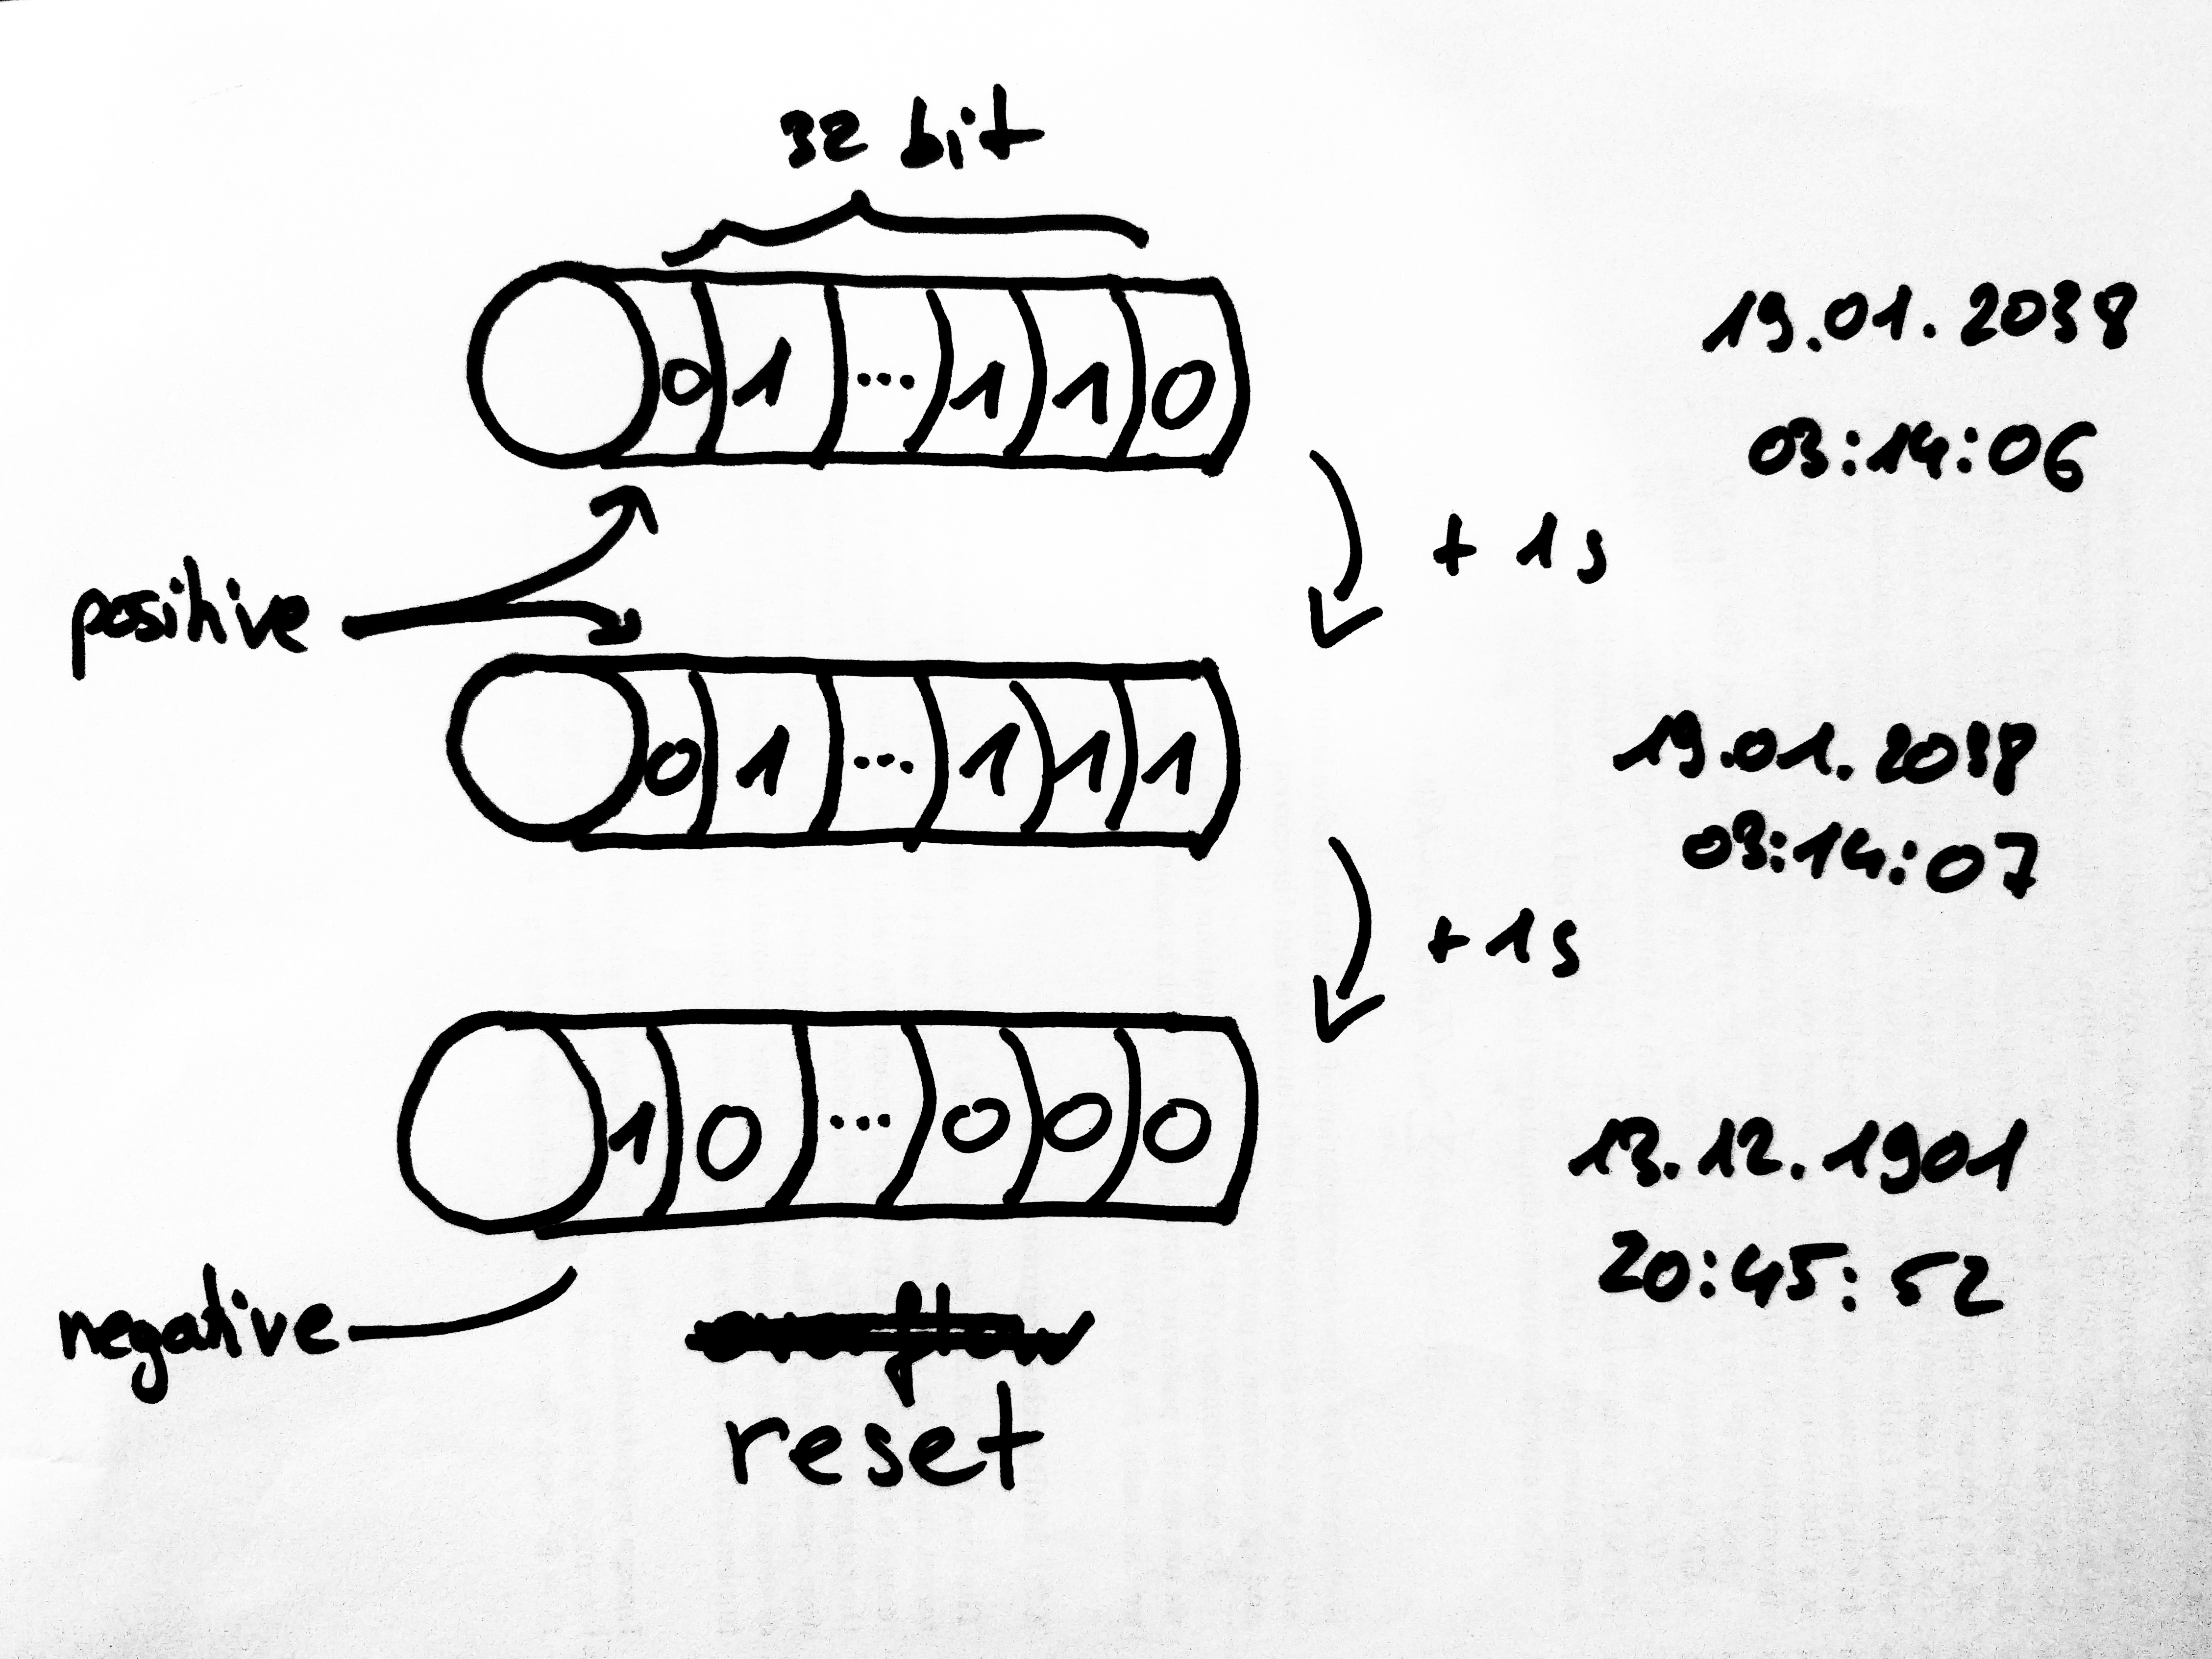 32 bit
0 1 ... 1 1 0
19.01.2038
03:14:06
+ 1s
positive
0 1 ... 1 1 1
19.01.2038
03:14:07
+1s
1 0 ... 0 0 0
13.12.1901
20:45:52
negative
overflow
reset